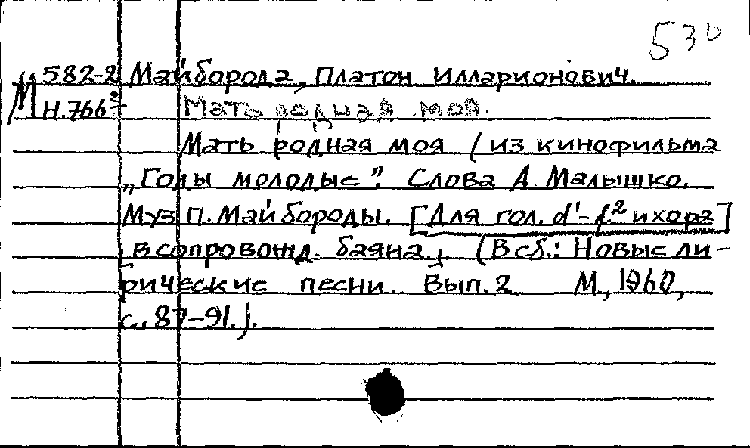 530
М 582-2 Майборода, Платон Илларионович.
Н.766³ Мать родная моя.
Мать родная моя (из кинофильма
„Годы молодые”. Слова А. Малышко.
Муз П. Майбороды. [Для гол. d'-f² и хора]
в сопровожд. баяна., (В сб.: Новые ли-
рические песни. Вып. 2 М., 1960,
с., 87-91.).